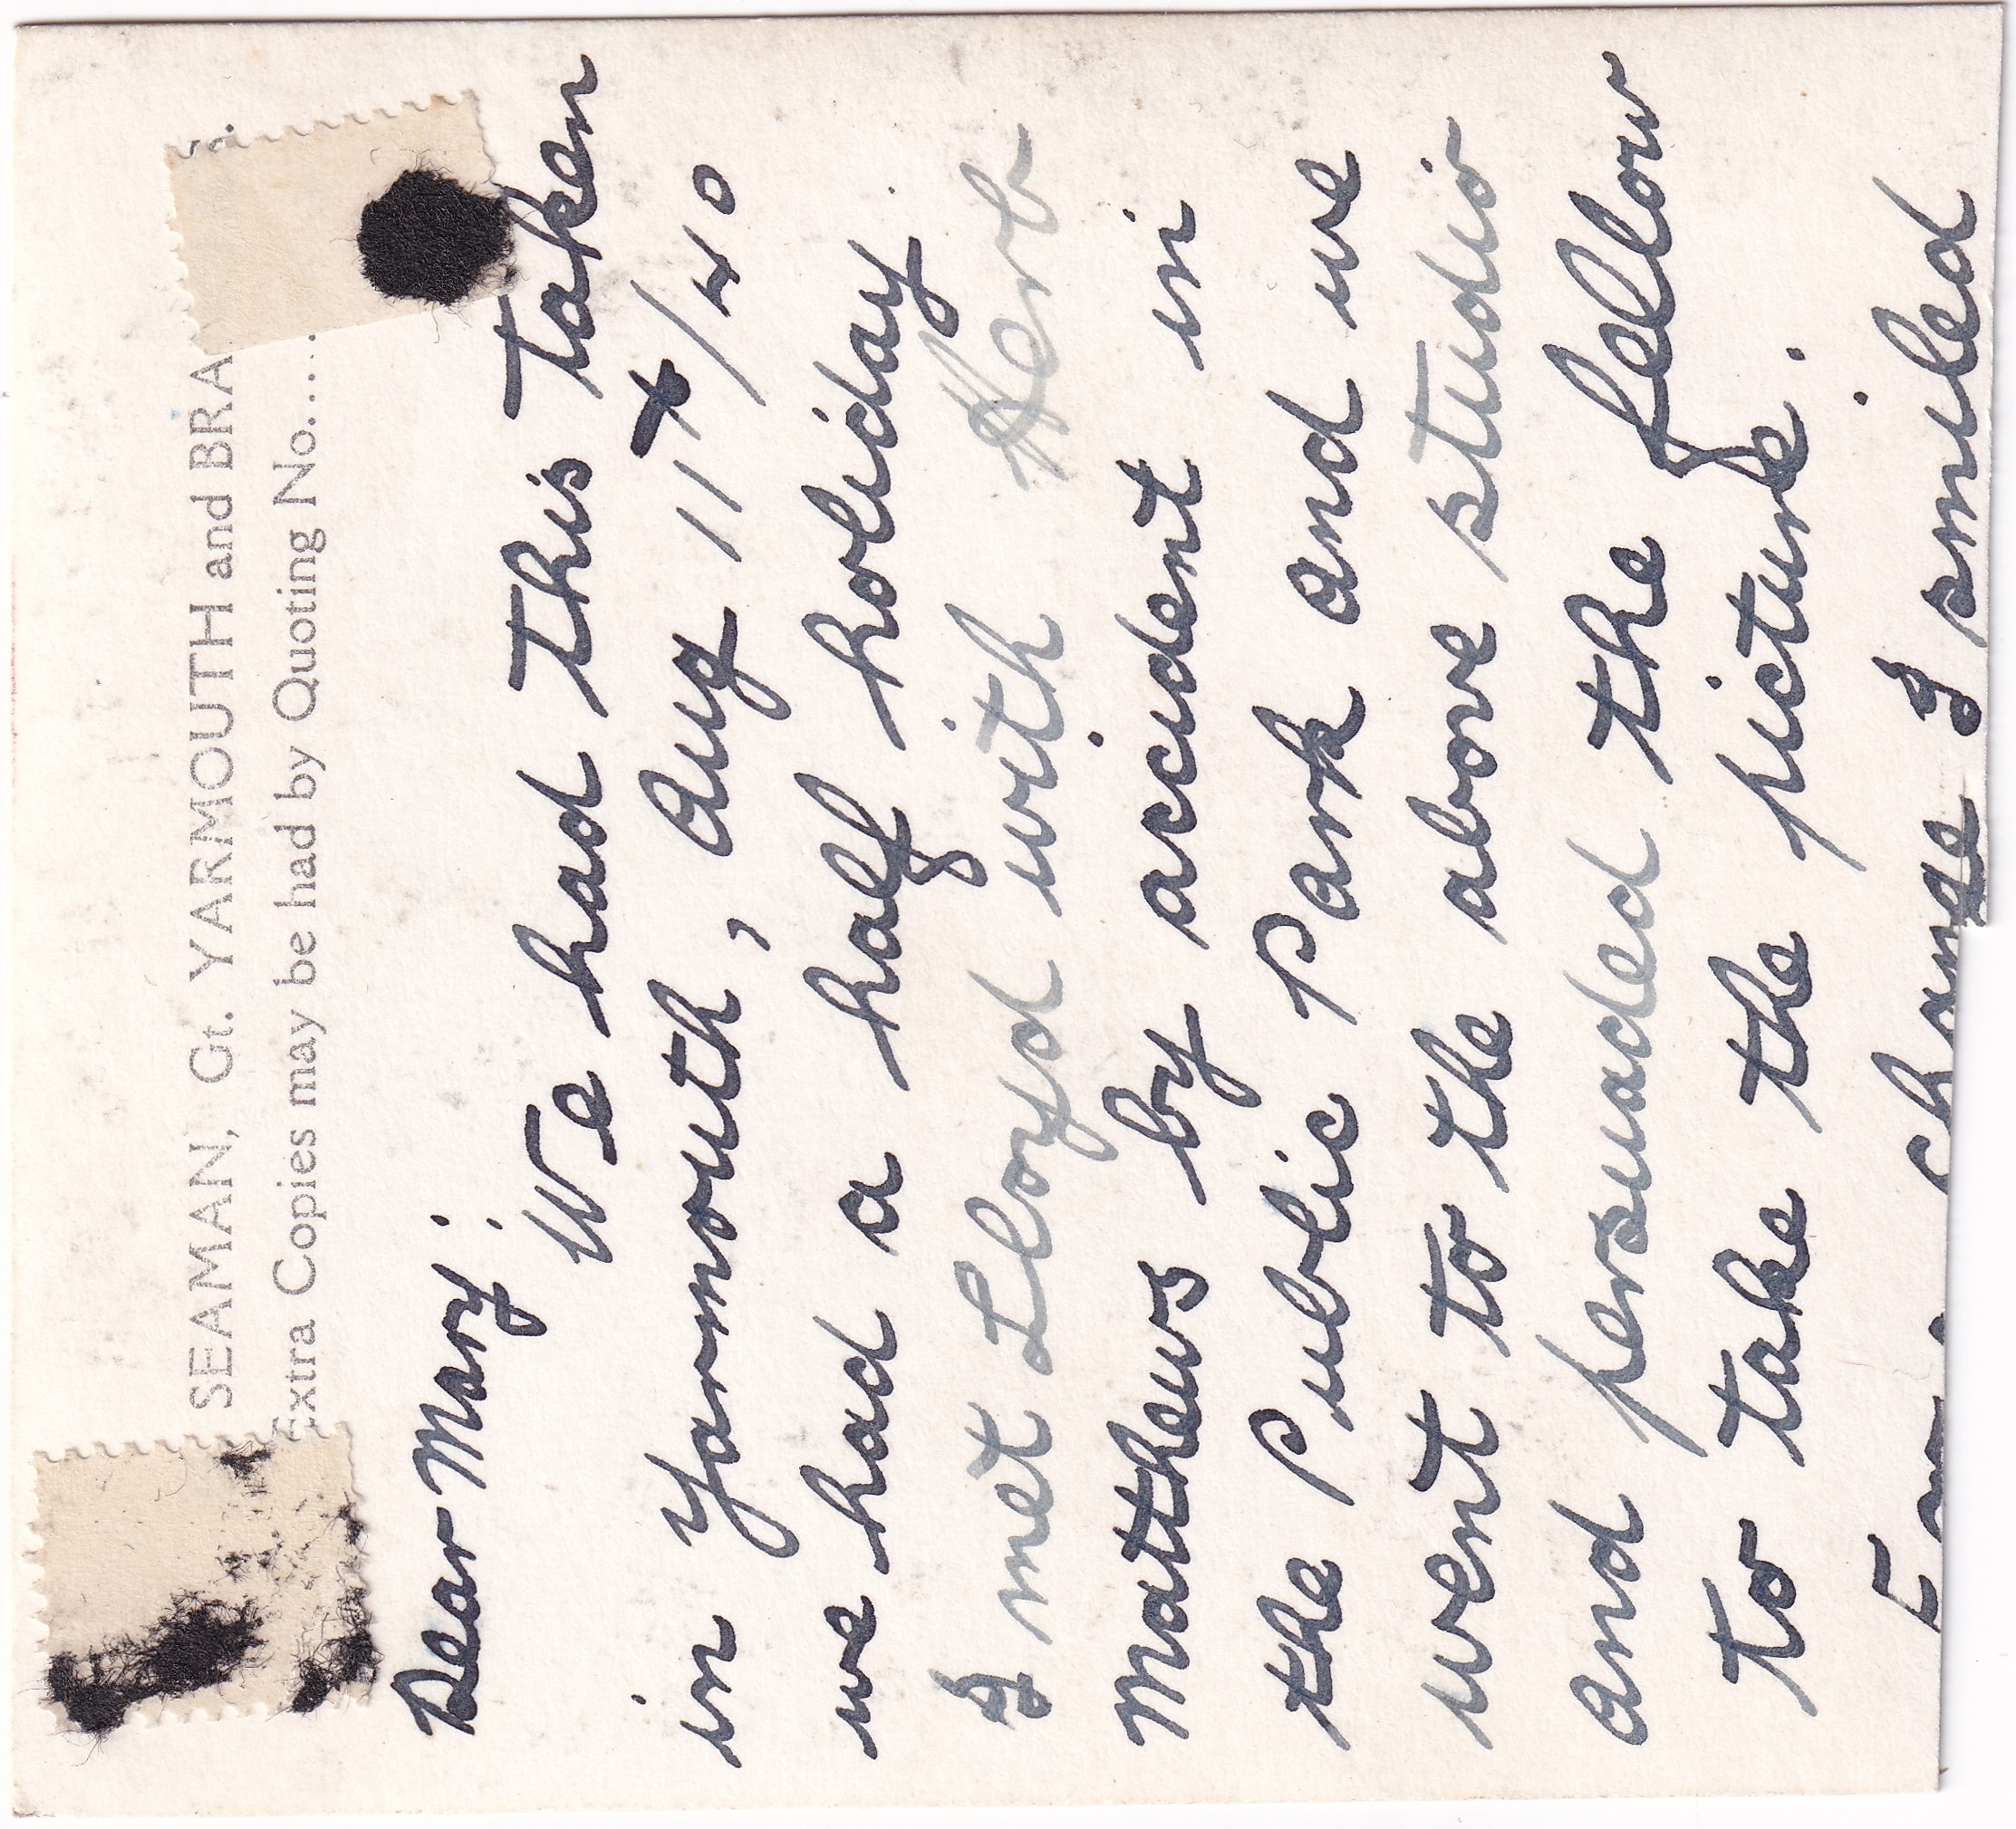 SEAMAN, Gt. YARMOUTH and BRA
Extra Copies may be had by Quoting No.....
Dear Mary:
We had this taken
in Yarmouth, Aug 11th/40
we had a half holiday.
I met Lloyd with Herb
Matthews by accident in
the Public Park and we
went to the above studio
and persuaded the fellow
to take the picture.
For a change I smiled